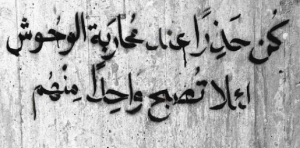 كُن حَذِرًا عند مُحاربة الوحوش
لئلا تُصبح واحِدًا مِنْهُم